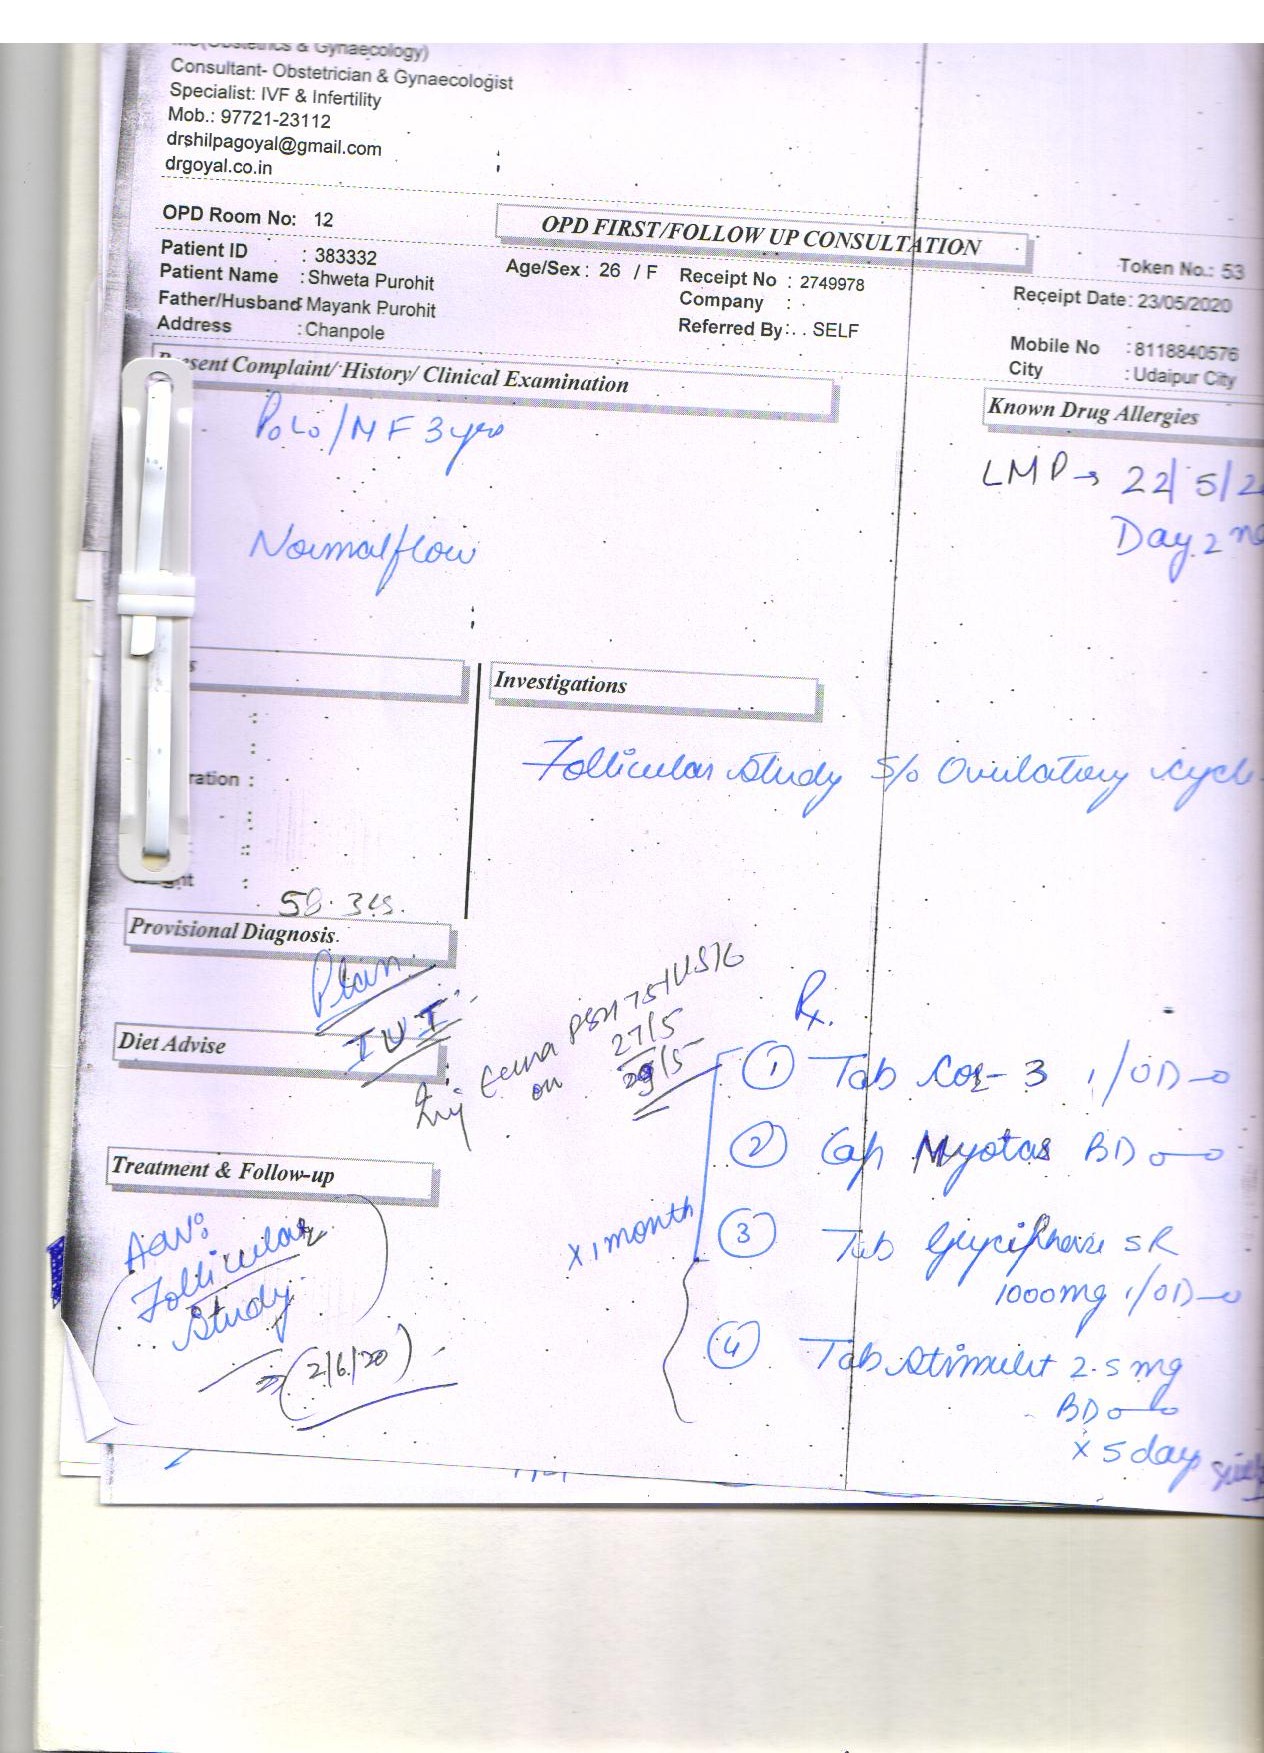 (Obstetrics & Gynaecology)
Consultant- Obstetrician & Gynaecologist
Specialist: IVF & Infertility
Mob.: 97721-23112
drshilpagoyal@gmail.com
drgoyal.co.in
OPD Room No: 12
OPD FIRST/FOLLOW UP CONSULTATION
Token No.: 53
Patient ID : 383332
Age/Sex : 26 / F
Receipt No : 2749978
Receipt Date: 23/05/2020
Patient Name : Shweta Purohit
Company :
Father/Husband: Mayank Purohit
Referred By: . . SELF
Mobile No : 8118840576
Address : Chanpole
City : Udaipur City
Present Complaint/ History/ Clinical Examination
Known Drug Allergies
P0L0/MF 3 yrs
LMP → 22/5/2
Day 2
Normal flow
Investigations
Follicular Study S/o Ovulatory cycle
ration :
58.3
Provisional Diagnosis.
Plan
IUI
Diet Advise
Inj
on 27/5
29/5
Rx.
① Tab Coq-3 1/OD
② Cap Myotas BD
③ Tab Glyciphage SR
1000mg 1/OD
x 1 month
④ Tab Stimulet 2.5 mg
BD
x 5 day
Treatment & Follow-up
Adv:
Follicular
Study
(2/6/20)